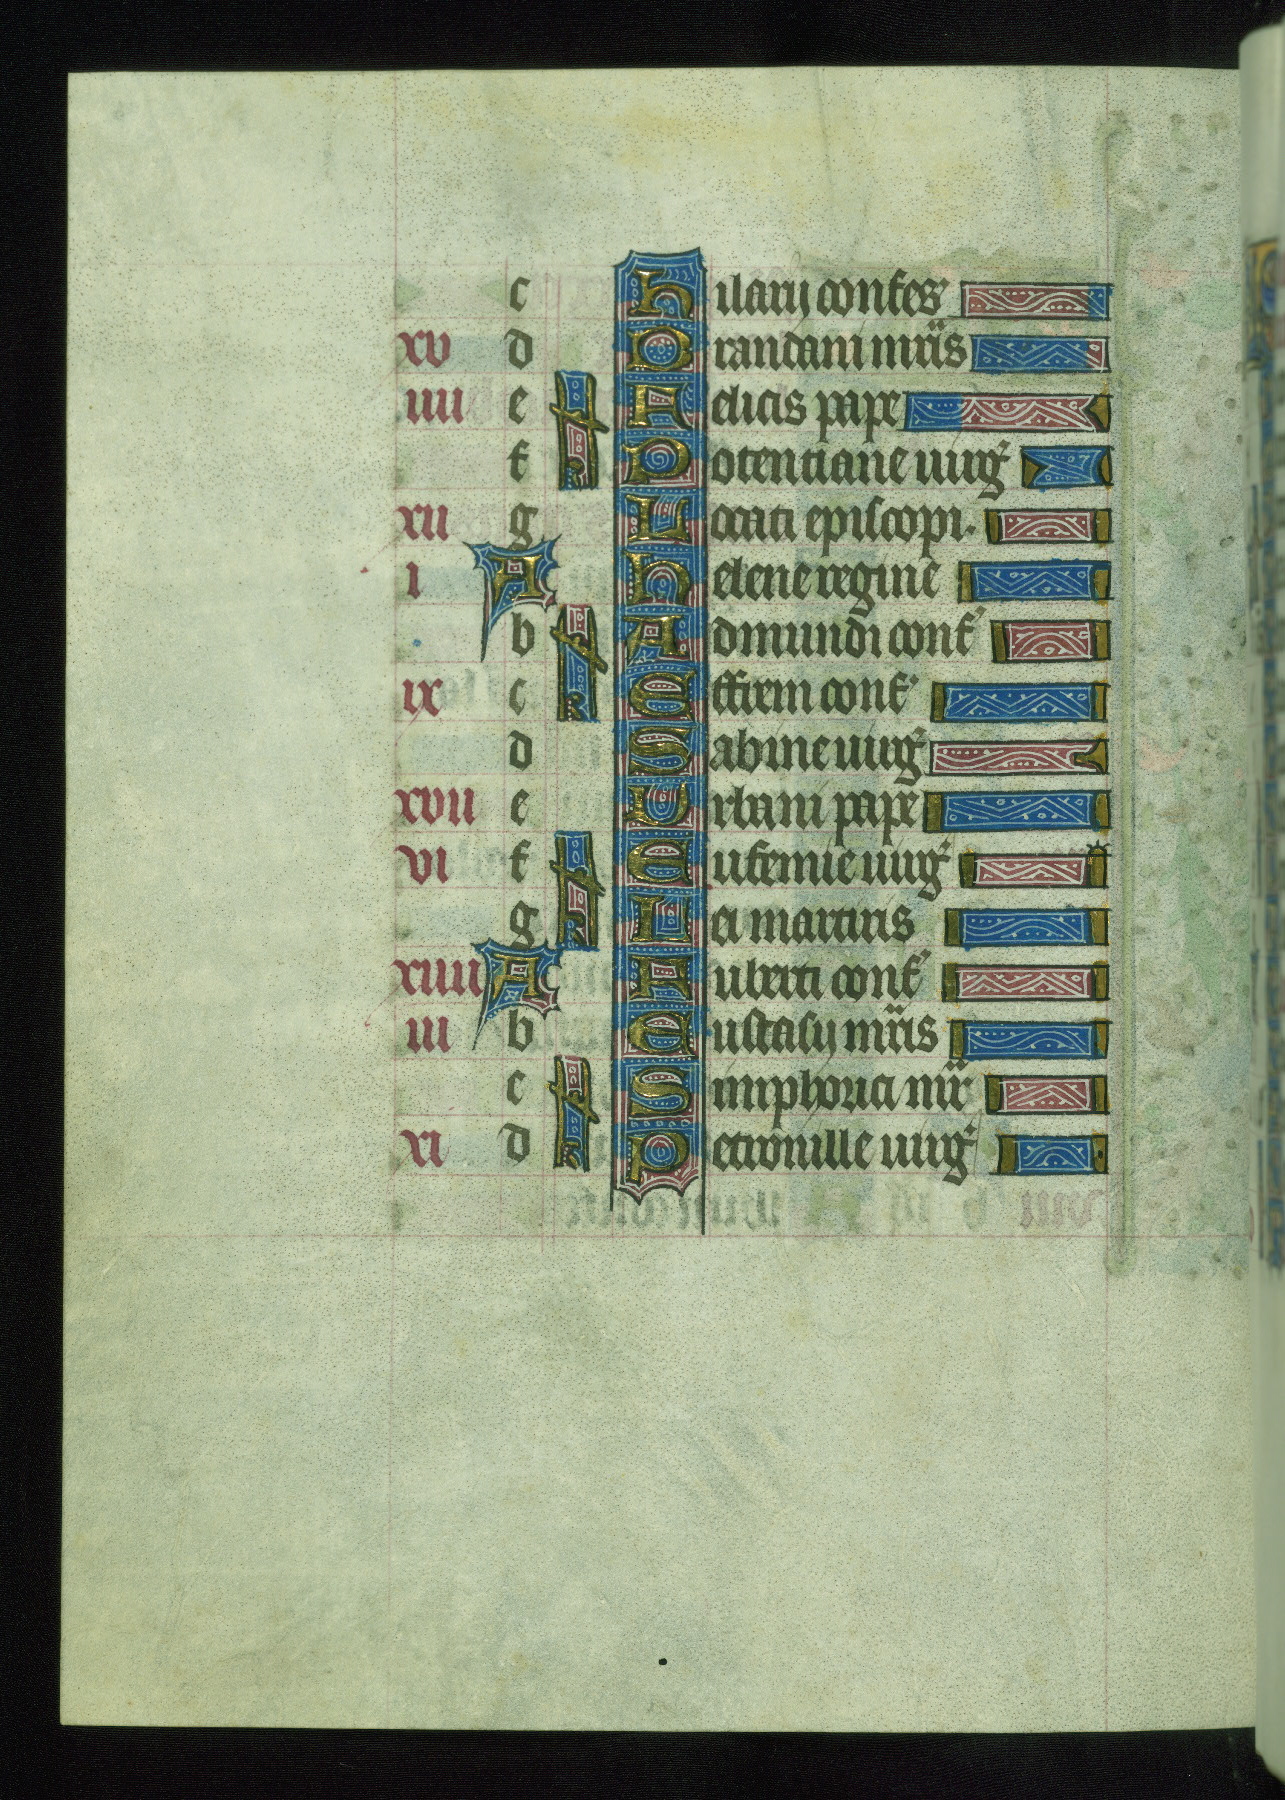 c Hilarij confes'
xv d Brandani mr̃is
iiii e A Felicis pape
f Potentiane uirg'
xii g Locati episcopi.
i A Helene regine
b A Admundi conf'
ix c Effrem conf'
d Sabine uirg'
xvii e Urbani pape
vi f A Eufemie uirg'
g Lei martiris
xiiii A Huberti conf'
iii b Eustasij mr̃is
c A Simphorici mr̃
xi d Petronille uirg'